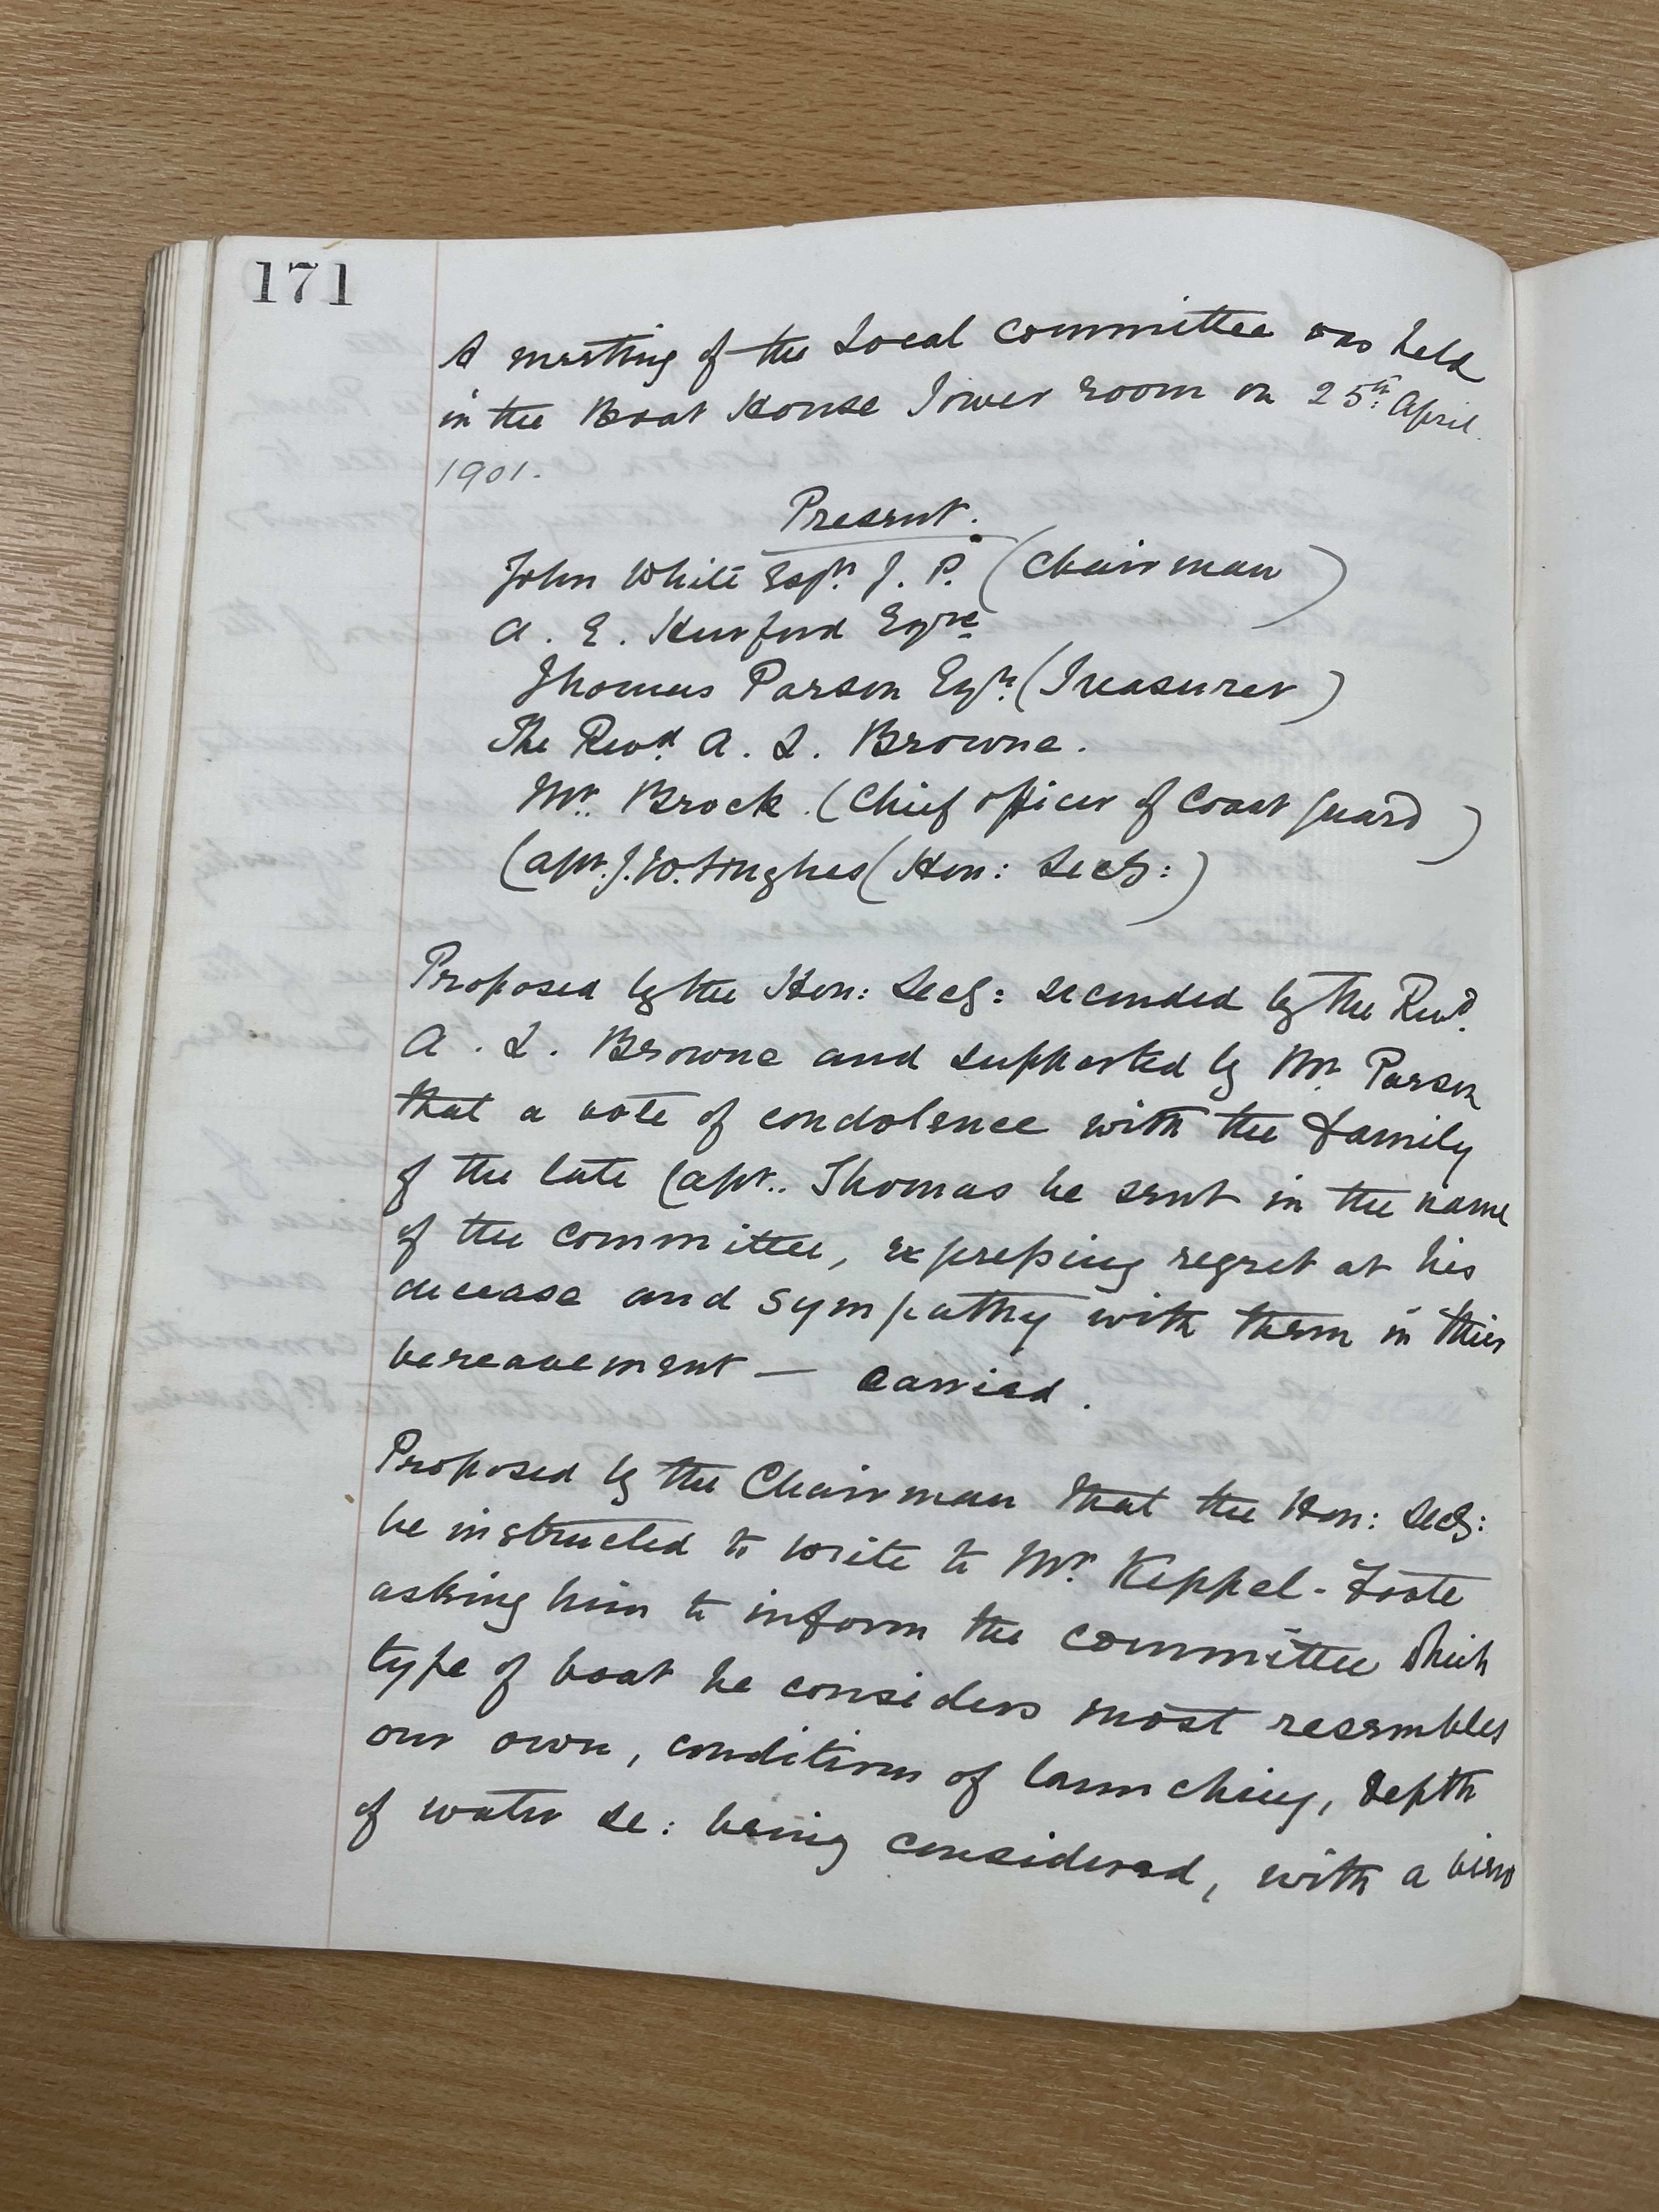 171
A meeting of the Local Committee was held
in the Boat House Tower room on 25th: April
1901.
Present.
John White Esqr. J. P. (Chairman)
A. E. Hurford Esqre
Thomas Parson Esqr. (Treasurer)
The Revd. A. L. Browne.
Mr. Brock. (Chief officer of Coast Guard)
Capt. J. W. Hughes (Hon: Secy:)
Proposed by the Hon: Secy: seconded by the Revd.
A. L. Browne and supported by Mr. Parson
that a vote of condolence with the family
of the late Capt.. Thomas be sent in the name
of the committee, expressing regret at his
decease and sympathy with them in their
bereavement — carried.
Proposed by the Chairman that the Hon: Secy:
be instructed to write to Mr. Keppel-Foote
asking him to inform the committee which
type of boat he considers most resembles
our own, conditions of launching, depth
of water &c: being considered, with a view